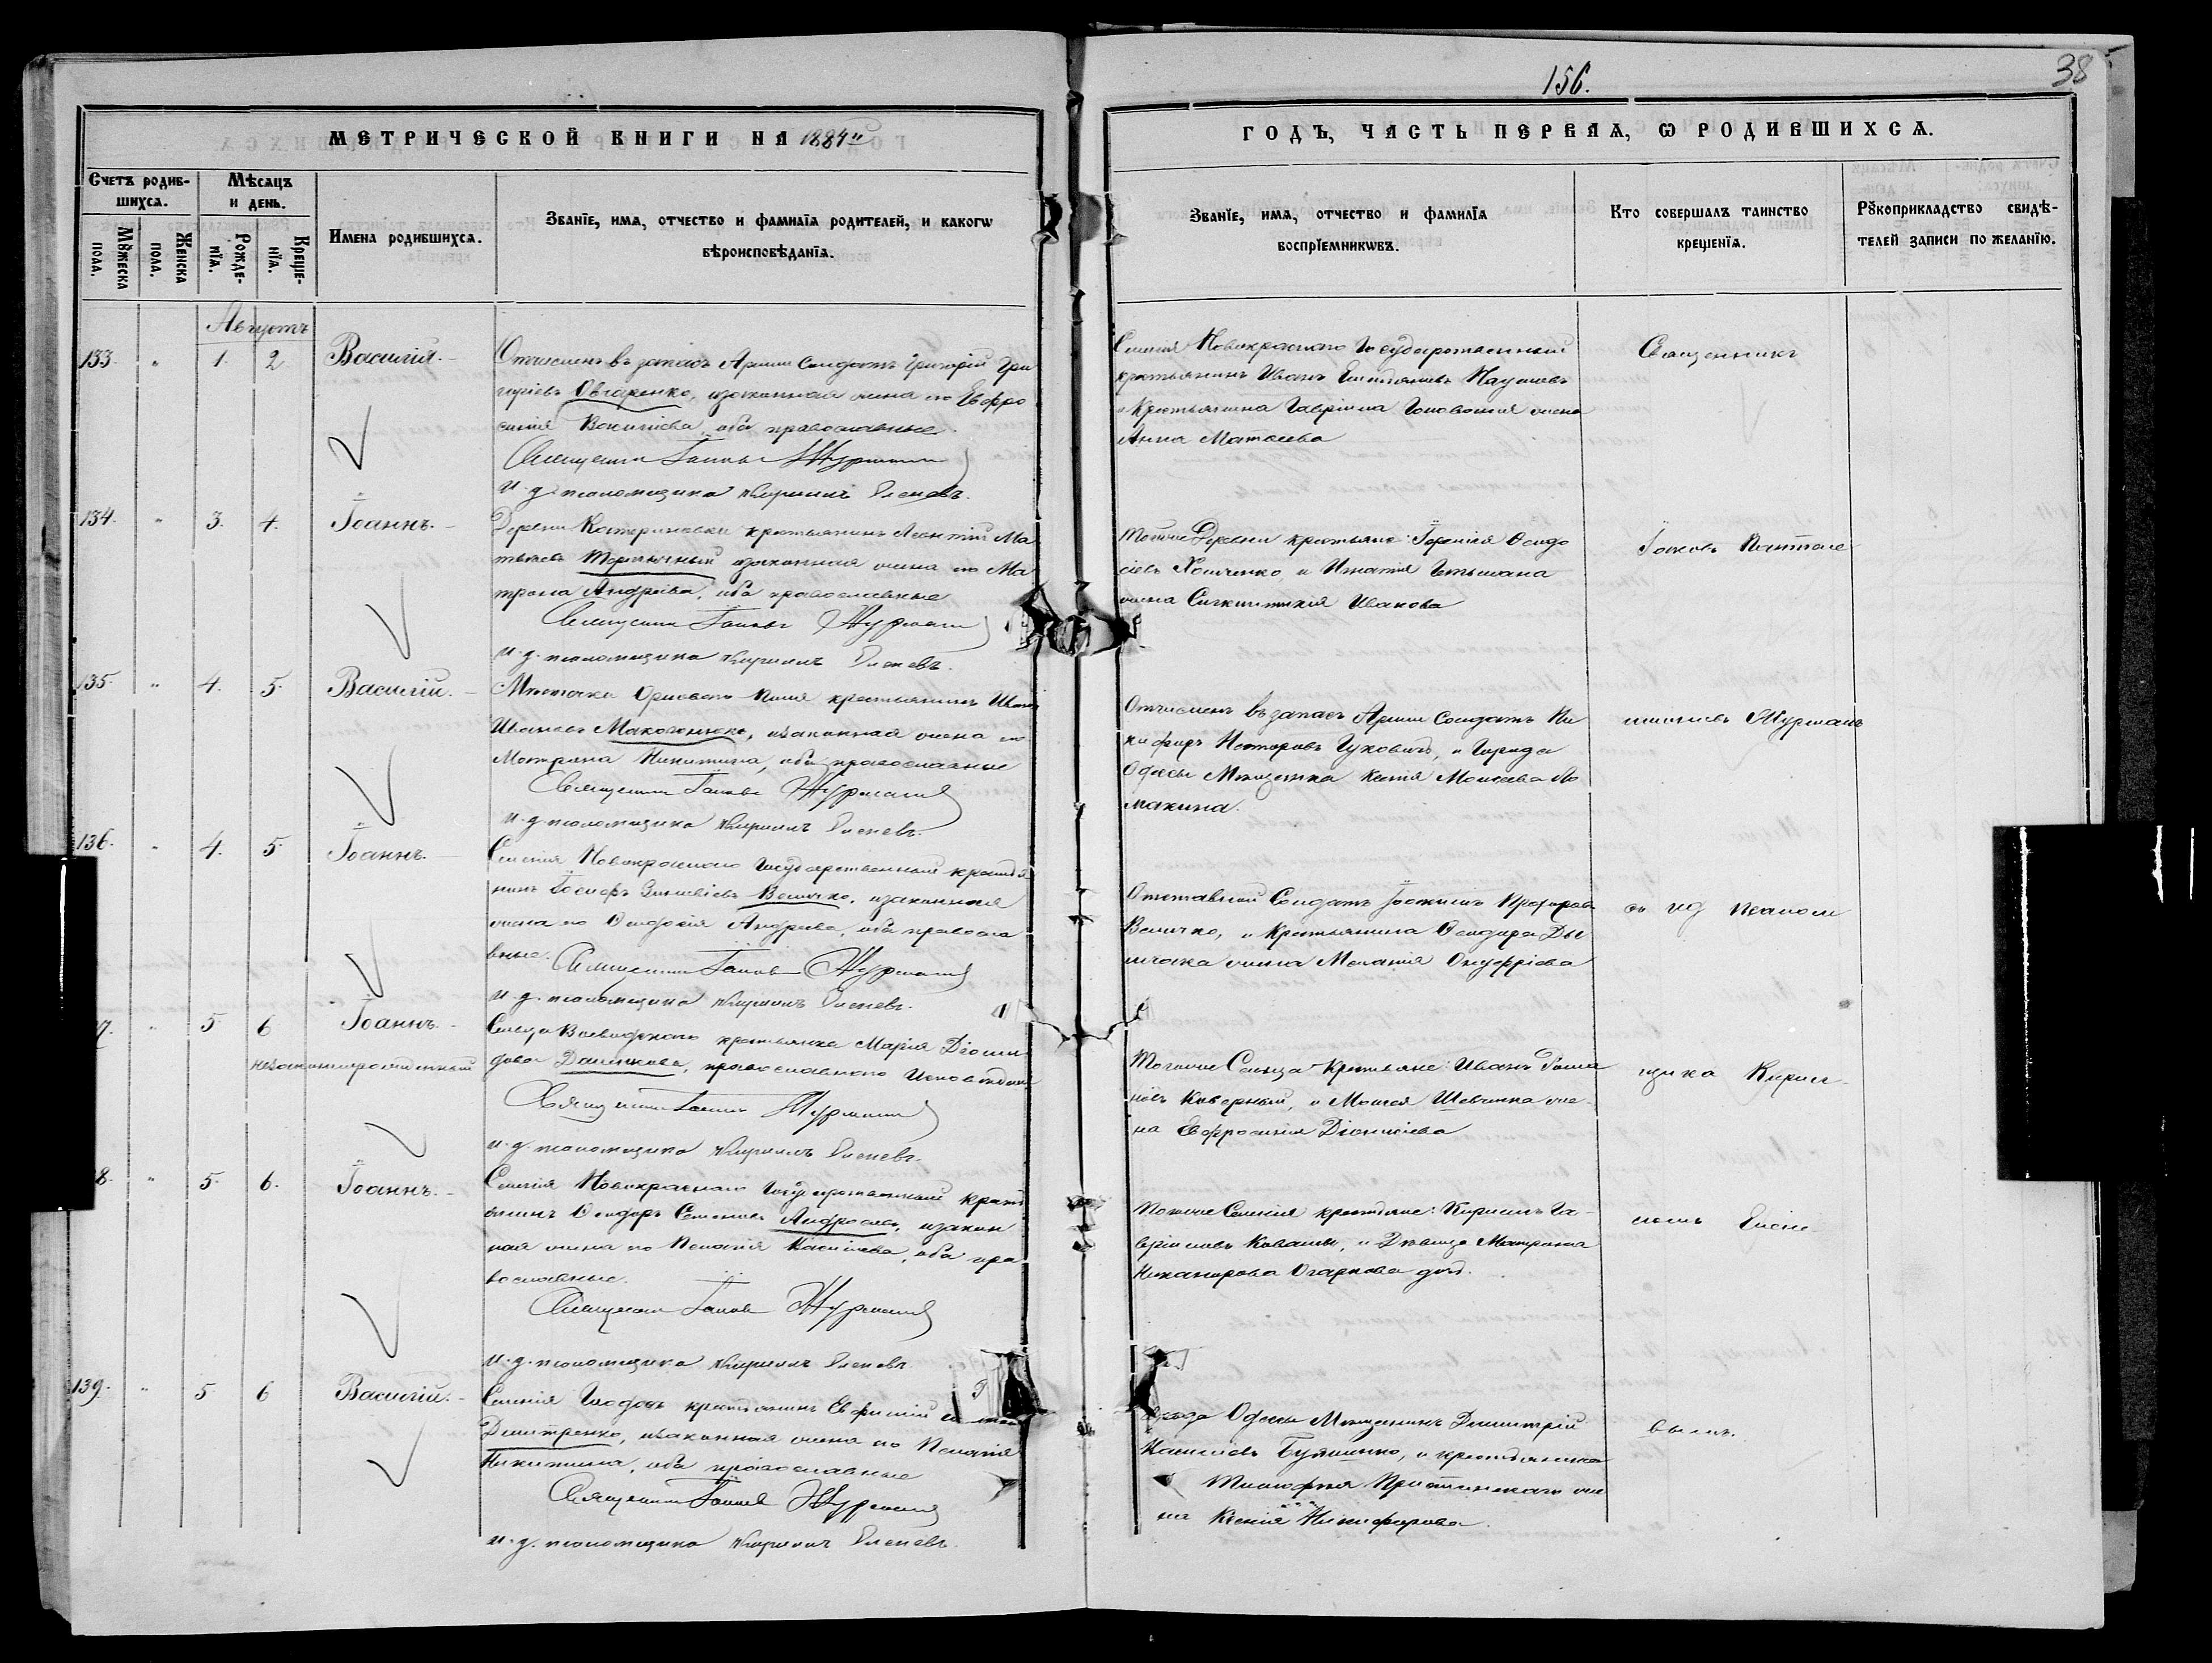 156.
38
МЕТРИЧЕСКОЙ КНИГИ НА 1884й
ГОДЪ, ЧАСТЬ ПЕРВАЯ, Ѡ РОДИВШИХСЯ.
Счетъ родив-
шихся.
Мѣсяцъ
и день.
Мꙋжеска
пола.
Женска
пола.
Рожде-
нїя.
Креще-
нїя.
Имена родившихся.
Званїе, имя, отчество и фамилїя родителей, и какогѡ
вѣроисповѣданїя.
Званїе, имя, отчество и фамилїя
воспрїемникѡвъ.
Кто совершалъ таинство
крещенїя.
Рꙋкоприкладство свидѣ-
телей записи по желанїю.
Августъ
133. " 1. 2 Василій.
Отчисленъ въ запасъ Арміи Солдатъ Григорій Гри
горіевъ Овчаренко, изаконная жена его Евфро
синія Василіева, оба православные.
Священникъ Іаковъ Журманъ
И. д. псаломщика Кириллъ Еленевъ.
Селенія Новокраснаго Государственный
крестьянинъ Иванъ Емельяновъ Наумовъ
и крестьянина Гавріила жена
Анна Матвеева
Священникъ
134. " 3. 4. Іоаннъ.
Деревни Катериновки крестьянинъ Леонтій Ма
твѣевъ изаконная жена его Ма
трона Андреева, оба православные
Священникъ Іаковъ Журманъ
И. д. псаломщика Кириллъ Еленевъ.
Тойже Деревни крестьяне:
Хомченко, и Игнатія Гетьмана
жена Синклитикія Иванова
Іаковъ Пантеле
135. " 4. 5. Василій.
Мѣстечка Ориоваго крестьянинъ Иванъ
Ивановъ Маковенко, изаконная жена его
Матрона Никитина, оба православные
Священникъ Іаковъ Журманъ
И. д. псаломщика Кириллъ Еленевъ.
Отчисленъ въ запасъ Арміи Солдатъ Ни
кифоръ Несторовъ Гуковичъ, и Города
Одессы Мѣщанка Ксенія Моисеева Ло
макина.
имоновъ Журманъ
136. " 4. 5 Іоаннъ.
Селенія Новокраснаго Государственный крестья
нинъ Іосифъ Величко, изаконная
жена его Ѳеодосія Андреева, оба правосла
вные. Священникъ Іаковъ Журманъ
И. д. псаломщика Кириллъ Еленевъ.
Отставной Солдатъ Іоакимъ
Величко, и крестьянина Ѳеодора
жена Меланія Онуфріева
съ ид псалом
7. " 5 6 Іоаннъ.
незаконнорожденный
Сельца крестьянка Марія Діоми
дова Данилкова, православнаго исповѣданія
Священникъ Іаковъ Журманъ
И. д. псаломщика Кириллъ Еленевъ.
Тогоже Сельца крестьяне: Иванъ
Каверный, и Моисея Шевченка же-
на Евфросинія Діонисіева
щика Кирил-
8. " 5. 6. Іоаннъ.
Селенія Новокраснаго Государственный крестья
янинъ Ѳеодоръ Семеновъ изакон
ная жена его Пелагія Василіева, оба пра
вославные.
Священникъ Іаковъ Журманъ
И. д. псаломщика Кириллъ Еленевъ.
Тогоже Селенія крестьяне: Кириллъ Га-
вріиловъ и Дѣвица Матрона
Никанорова Огаркова
ломъ Елене-
139. " 5 6 Василій.
Селенія Глодосъ крестьянинъ Евфимій
Дмитренко, изаконная жена его Пелагія
Никитина, оба православные
Священникъ Іаковъ Журманъ
и. д. псаломщика Кириллъ Еленевъ.
Города Одессы Мѣщанинъ Димитрій
и крестьянина
Тимофея жe
на Ксенія Никифорова.
вымъ.